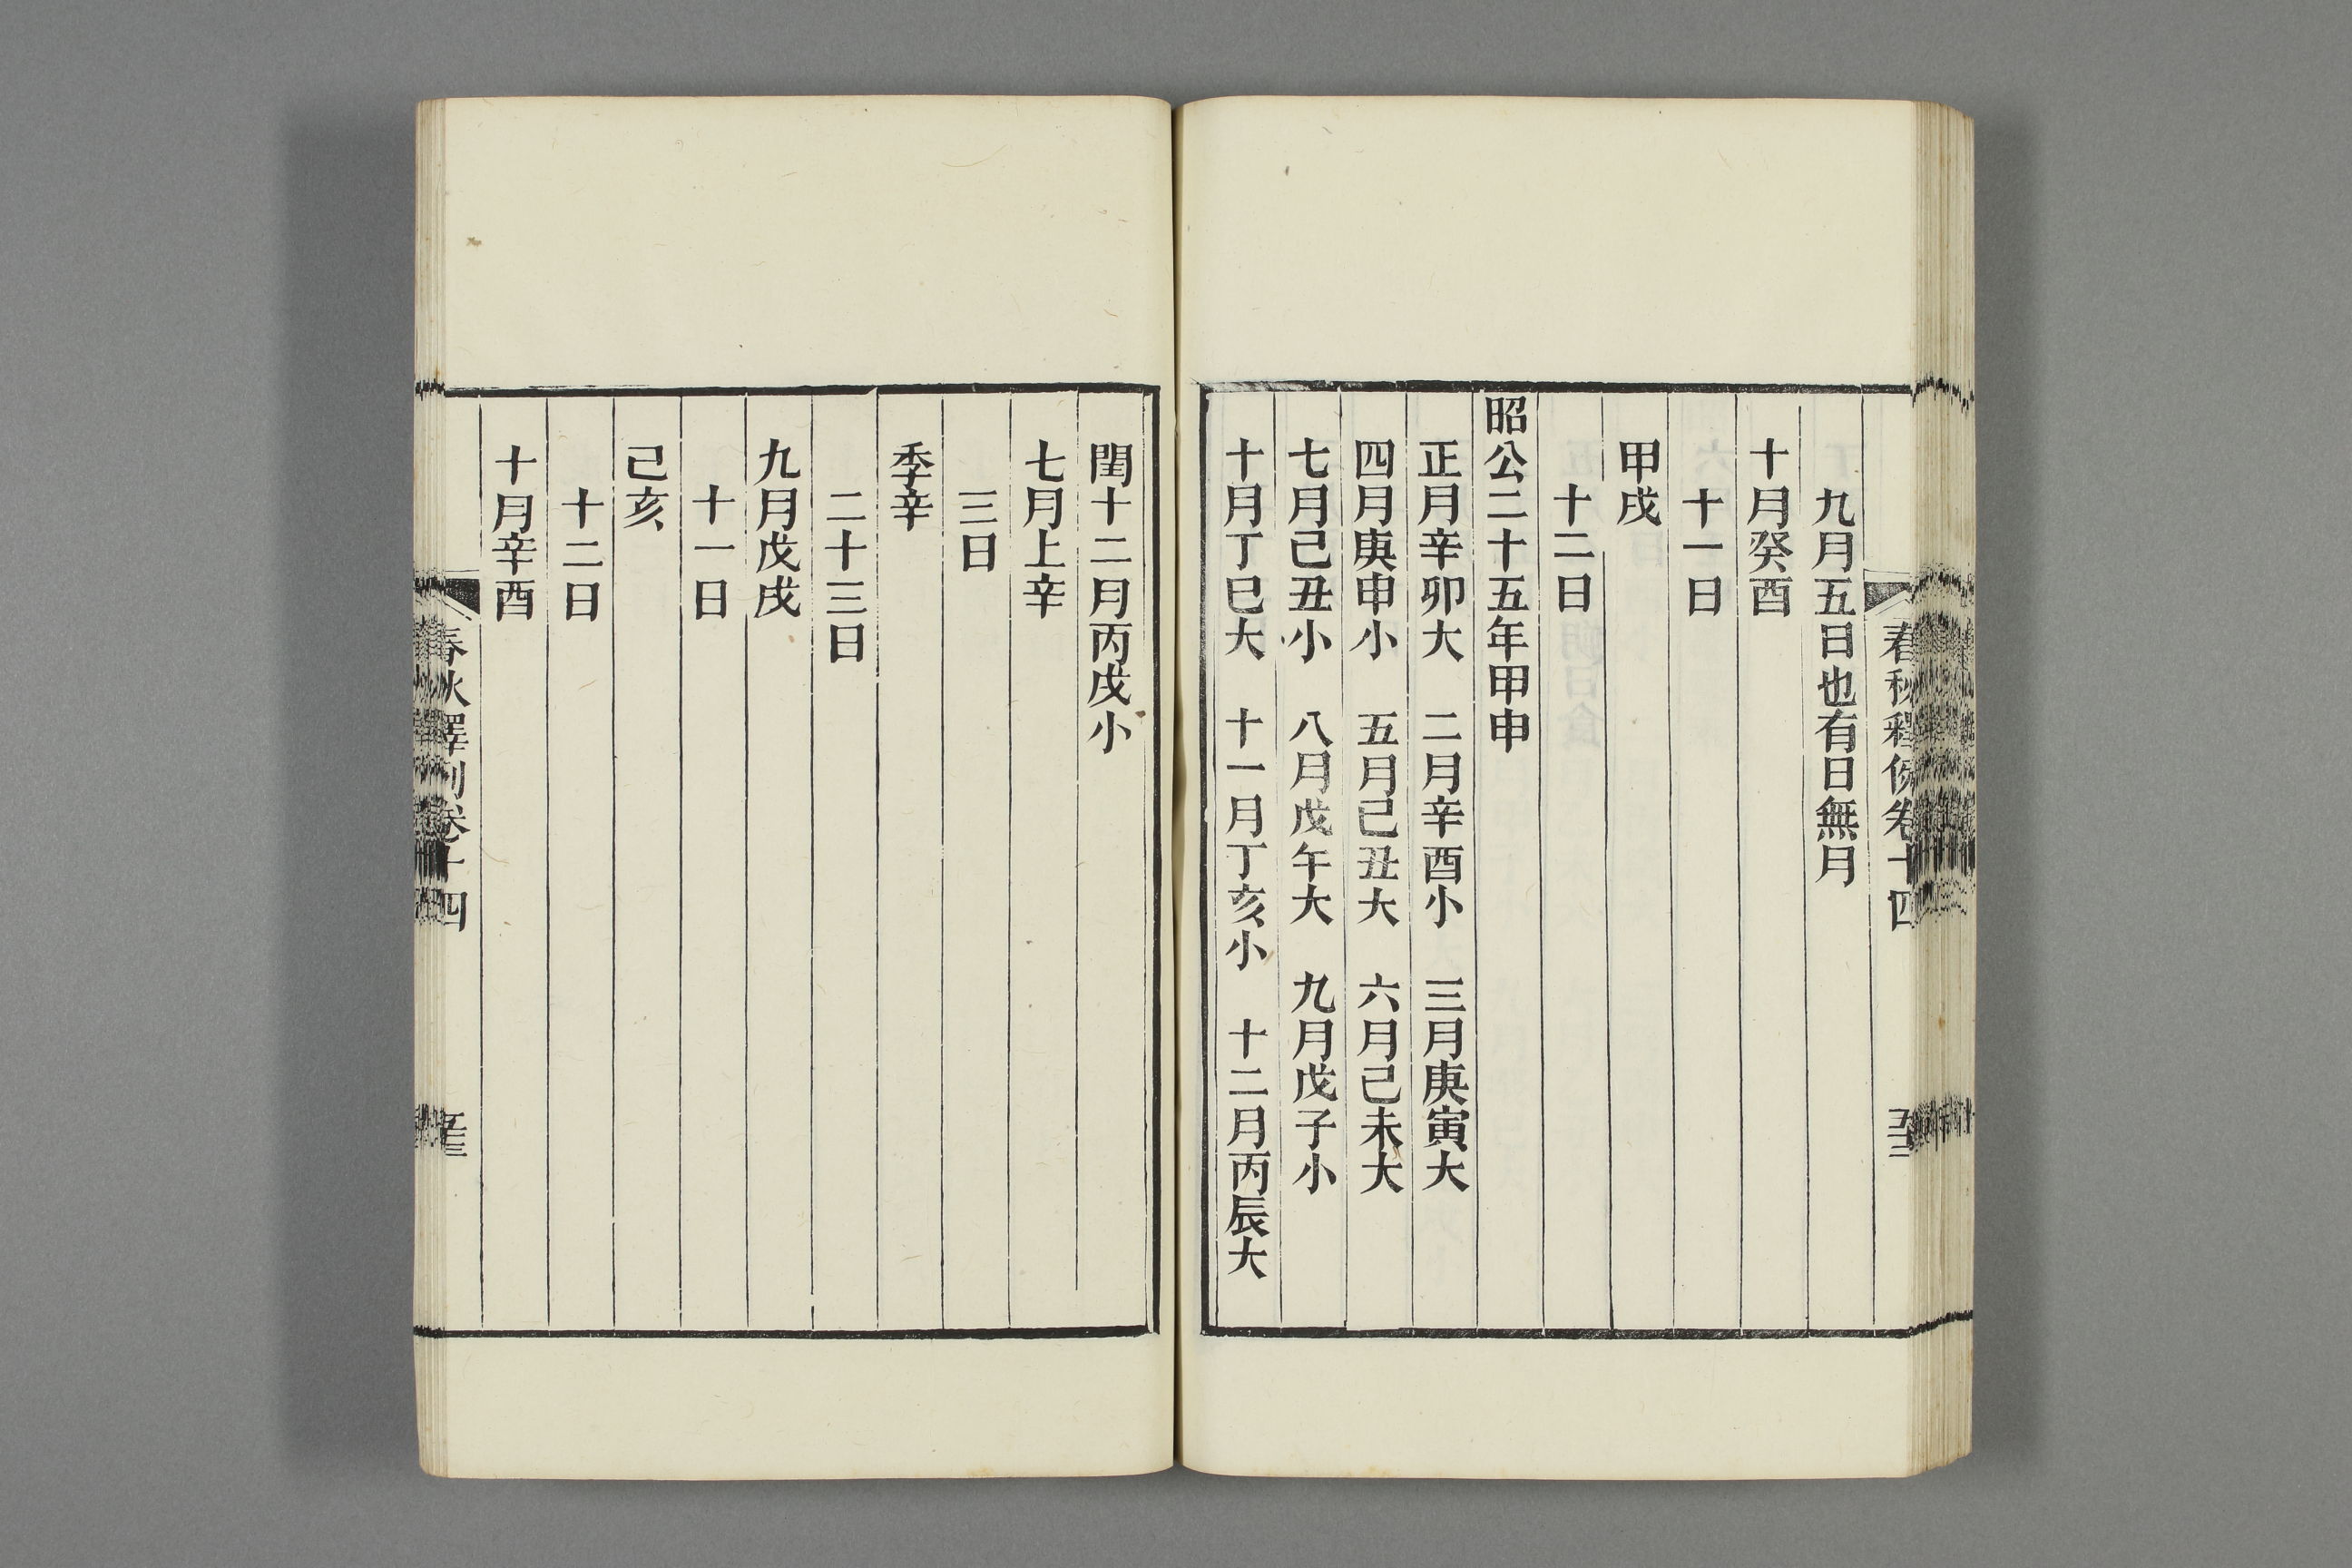 春秋釋例卷十四
九月五日也有日無月
十月癸酉
十一日
甲戌
十二日
昭公二十五年甲申
正月辛卯大 二月辛酉小 三月庚寅大
四月庚申小 五月己丑大 六月己未大
七月己丑小 八月戊午大 九月戊子小
十月丁巳大 十一月丁亥小 十二月丙辰大
閏十二月丙戌小
七月上辛
三日
季辛
二十三日
九月戊戌
十一日
己亥
十二日
十月辛酉
春秋釋例卷十四